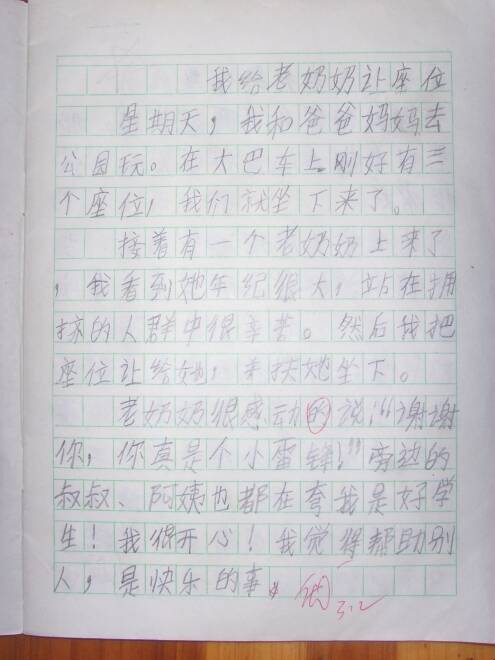 我给老奶奶让座位
星期天，我和爸爸妈妈去
公园玩。在大巴车上刚好有三
个座位，我们就坐下来了。
接着有一个老奶奶上来了
，我看到她年纪很大，站在拥
挤的人群中很辛苦。然后我把
座位让给她，来扶她坐下。
老奶奶很感动的说：“谢谢
你，你真是个小雷锋！”旁边的
叔叔、阿姨也都在夸我是好学
生！我很开心！我觉得帮助别
人，是快乐的事。
3.2